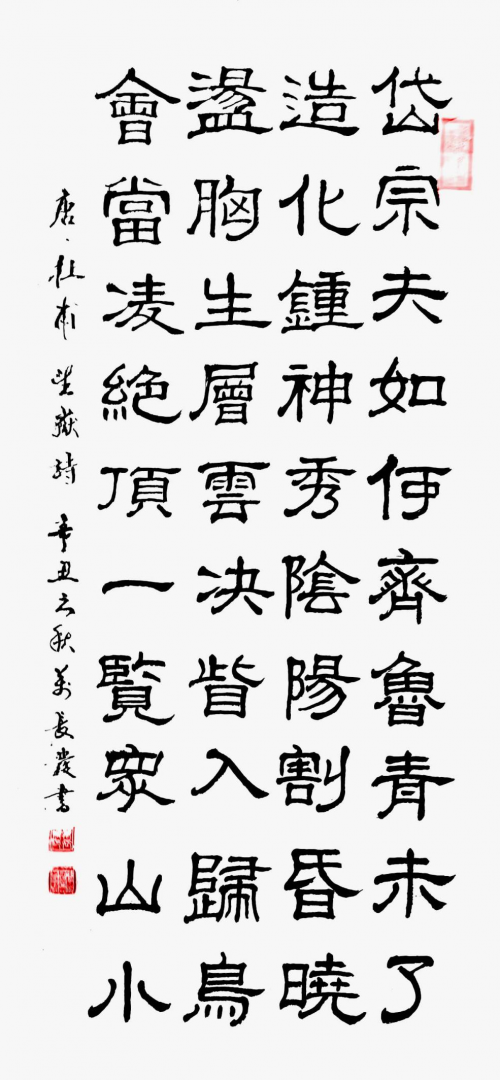 岱宗夫如何齊魯青未了
造化鍾神秀陰陽割昏曉
盪胸生層雲决眥入歸鳥
會當凌絕頂一覽眾山小
唐、杜甫望嶽詩辛丑之秋萬長發書